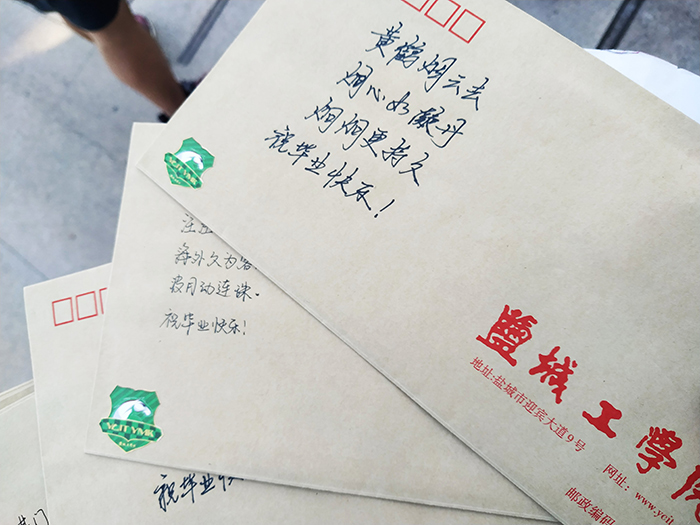 黄鹤烟云去
炯心如激丹
炯炯更持久
祝毕业快乐!
鹽城工学院
地址:盐城市迎宾大道9号
网址:www.ycit
邮政编码
海外久为客.
波月动连珠.
祝毕业快乐!
YCIT YMK
祝毕业快
门